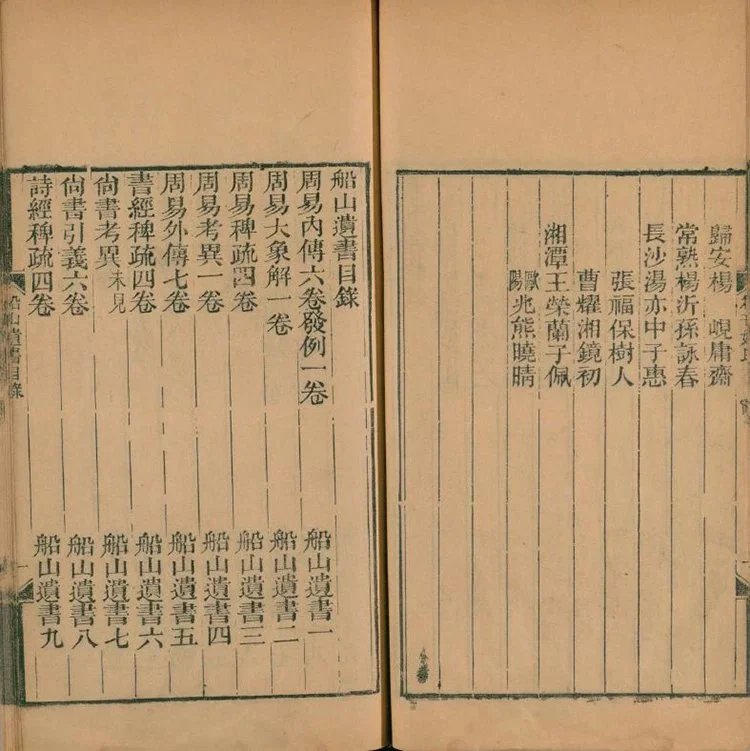 歸安楊　峴庸齋
常熟楊沂孫詠春
長沙湯亦中子惠
張福保樹人
曹耀湘鏡初
湘潭王榮蘭子佩
歐陽兆熊曉晴
船山遺書目錄
周易內傳六卷發例一卷　船山遺書一
周易大象解一卷　船山遺書二
周易稗疏四卷　船山遺書三
周易考異一卷　船山遺書四
周易外傳七卷　船山遺書五
書經稗疏四卷　船山遺書六
尙書考異未見　船山遺書七
尙書引義六卷　船山遺書八
詩經稗疏四卷　船山遺書九
船山遺書目錄　一